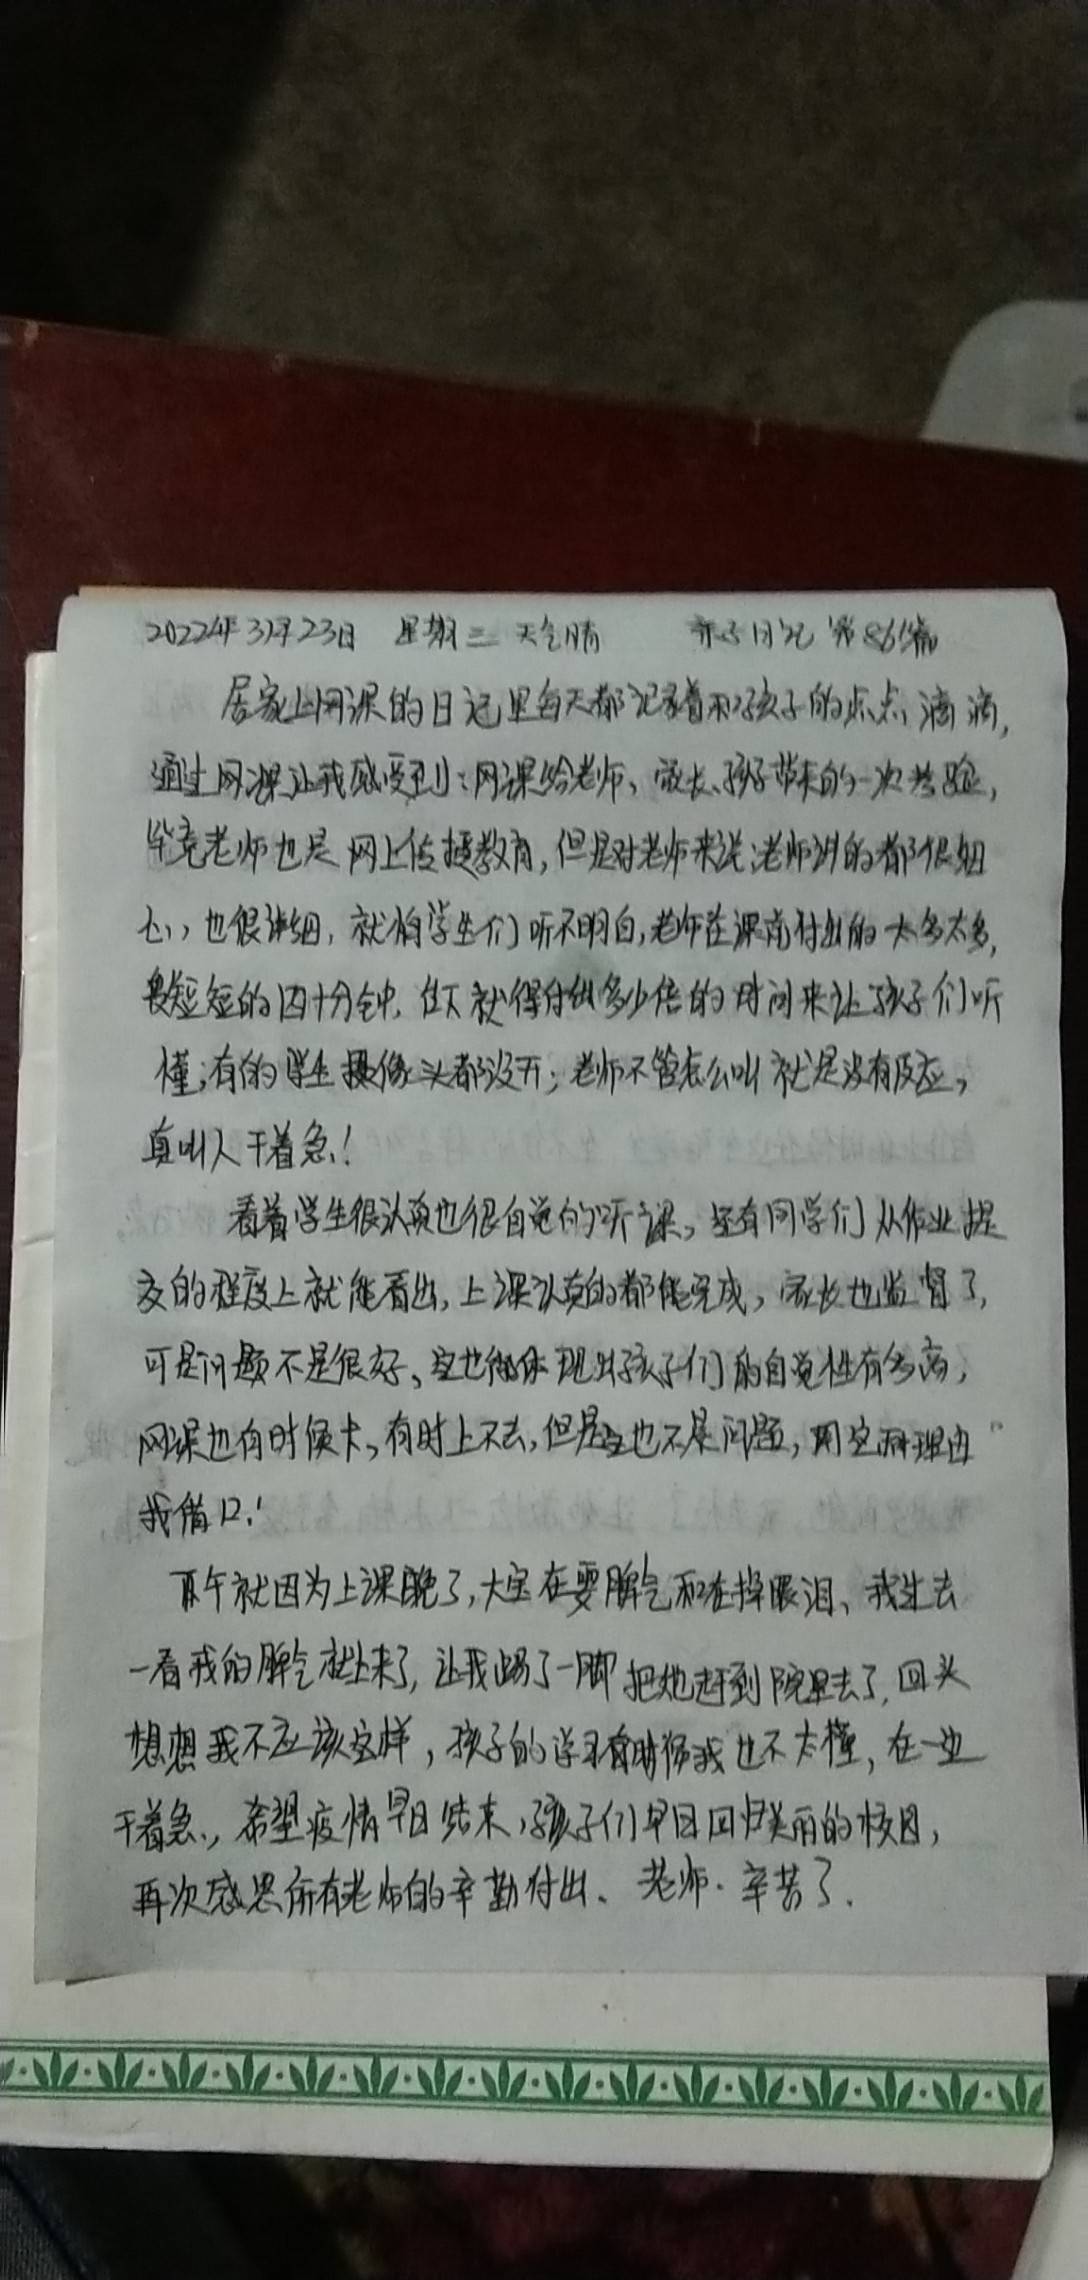 2022年3月23日 星期三 天气晴 亲子日记 第861篇
居家上网课的日记里每天都记录着和孩子的点点滴滴,
通过网课让我感受到:网课给老师、家长、孩子带来的一次考验,
毕竟老师也是网上传授教育,但是对老师来说;老师讲的都很细
心,也很详细,就怕学生们听不明白,老师在课前付出的太多太多,
短短的四十分钟, 就得付出多少倍的时间来让孩子们听
懂;有的学生摄像头都没开;老师不管怎么叫就是没有反应,
真叫人干着急!
看着学生很认真也很自觉的听课,还有同学们从作业提
交的程度上就能看出,上课认真的都能完成,家长也监督了,
可是问题不是很好、这也能体现出孩子们的自觉性有多高,
网课也有时候卡,有时上不去,但是这也不是问题,用这种理由
找借口!
下午就因为上课晚了,大宝在耍脾气和在掉眼泪、我进去
一看我的脾气就上来了,让我踢了一脚把她赶到院里去了,回头
想想我不应该这样,孩子的学习有时候我也不太懂,在一边
干着急,希望疫情早日结束,孩子们早日回归美丽的校园,
再次感恩所有老师的辛勤付出、老师·辛苦了.